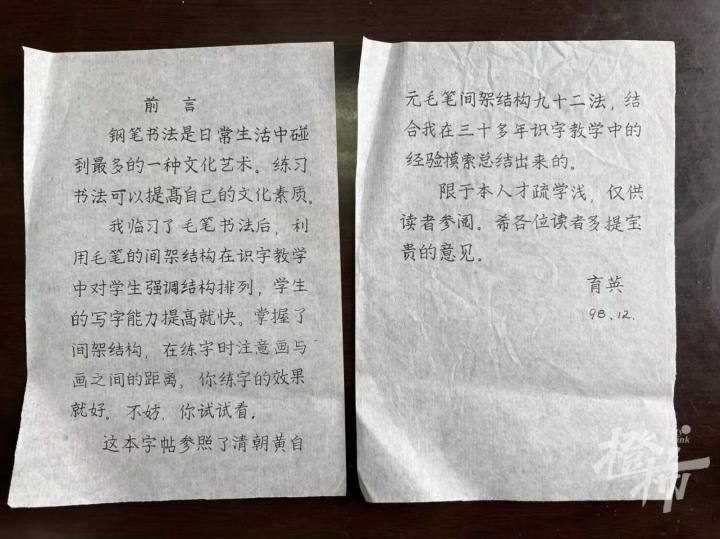 前言
钢笔书法是日常生活中碰
到最多的一种文化艺术。练习
书法可以提高自己的文化素质。
我临习了毛笔书法后，利
用毛笔的间架结构在识字教学
中对学生强调结构排列，学生
的写字能力提高就快。掌握了
间架结构，在练字时注意画与
画之间的距离，你练字的效果
就好。不妨，你试试看。
这本字帖参照了清朝黄自
元毛笔间架结构九十二法，结
合我在三十多年识字教学中的
经验摸索总结出来的。
限于本人才疏学浅，仅供
读者参阅。希各位读者多提宝
贵的意见。
育英
98.12.
橙柿